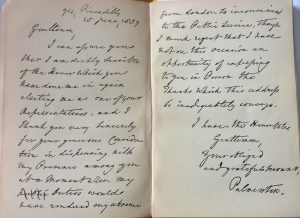 94, Piccadilly
20 June, 1859
Gentlemen,
I can assure you
that I am deeply sensible
of the Honor which you
have done me in again
electing me as one of your
Representatives, and I
thank you very sincerely
for your generous Consider
ation in dispensing with
my Presence among you
at a Moment when my
Duties would
have rendered my absence
from London so inconvenient
to the Public Service, though
I much regret that I have
not on this occasion an
opportunity of expressing
to you in Person the
Thanks which this address
so inadequately conveys.
I have the Honor to be
Gentlemen,
Your obliged
and grateful Servant,
Palmerston